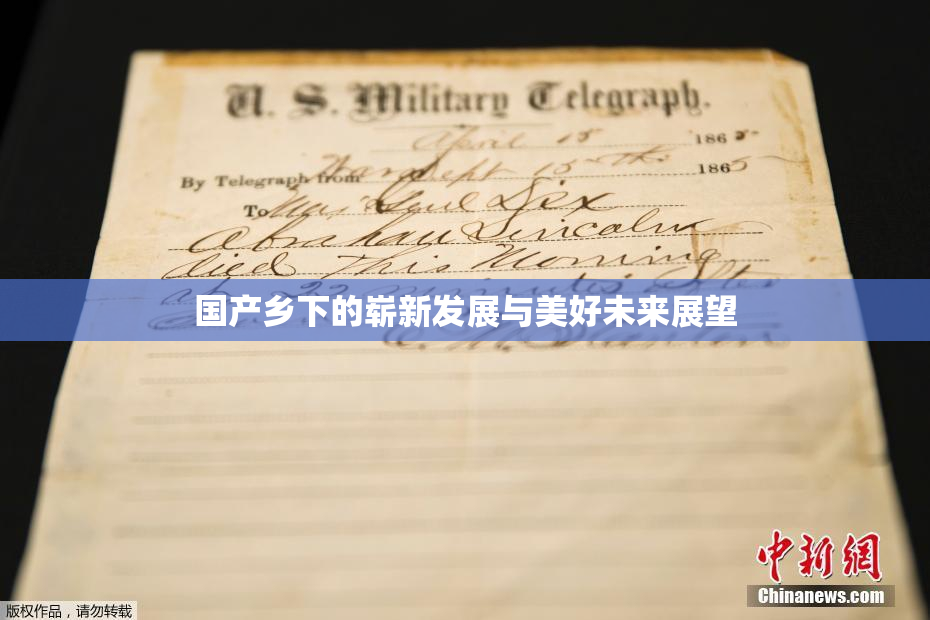 U. S. Military Telegraph.
April 15 1865
By Telegraph from War Dept 15th 1865
To Maj Genl Dix
Abraham Lincoln
died This Morning
at 22 minutes after
国产乡下的崭新发展与美好未来展望
E. M. Stanton
中新网
Chinanews.com
版权作品，请勿转载